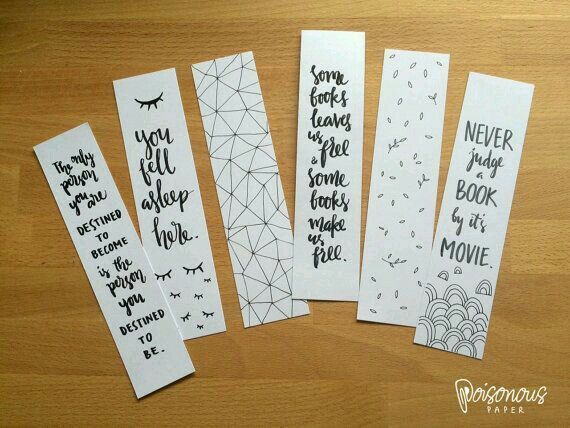 The only
person
you are
DESTINED
TO
BECOME
is the
person
you
DESTINED
TO
BE.
you
fell
asleep
here.
some
books
leaves
us
free
&
some
books
make
us
free.
NEVER
judge
a
BOOK
by it's
MOVIE.
Poisonous
PAPER